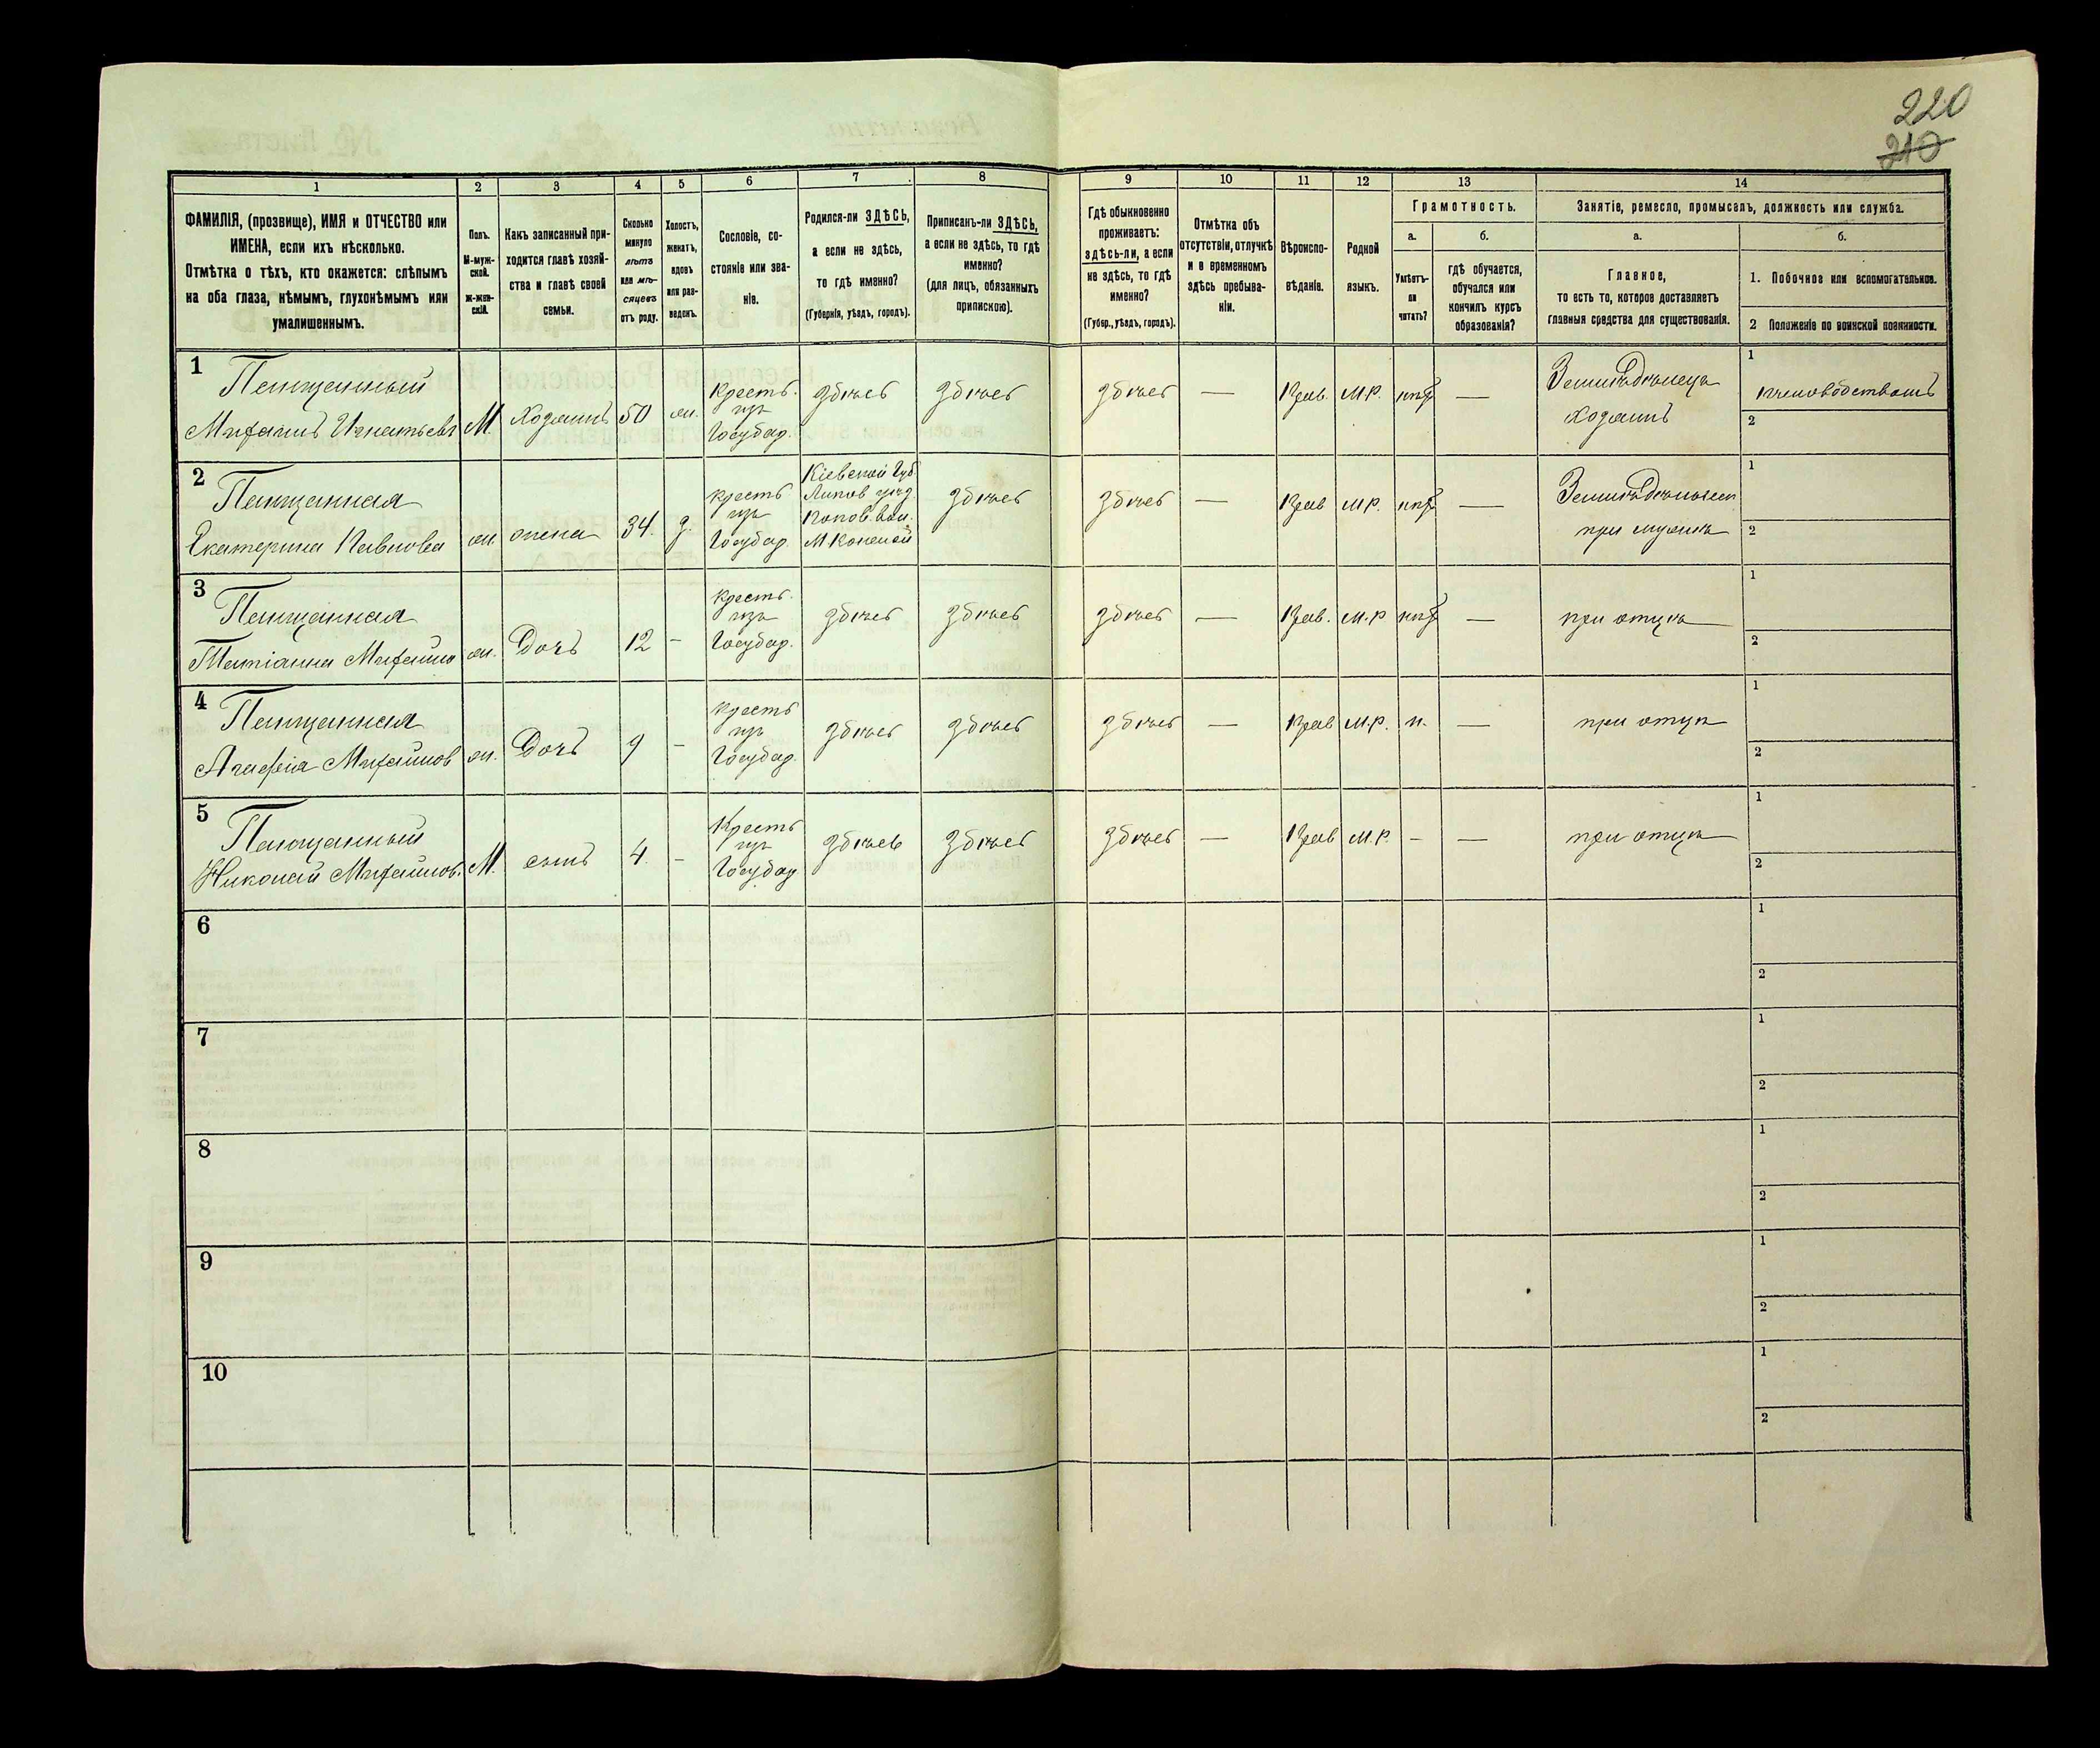 220
210
1 2 3 4 5 6 7 8 9 10 11 12 13 14
ФАМИЛІЯ, (прозвище), ИМЯ и ОТЧЕСТВО или ИМЕНА, если ихъ нѣсколько.
Отмѣтка о тѣхъ, кто окажется: слѣпымъ на оба глаза, нѣмымъ, глухонѣмымъ или умалишеннымъ.
Полъ.
М-муж-
ской.
ж-жен-
скій.
Какъ записанный при-
ходится главѣ хозяй-
ства и главѣ своей
семьи.
Сколько
минуло
лѣтъ
или мѣ-
сяцевъ
отъ роду.
Холостъ,
женатъ,
вдовъ
или раз-
веденъ.
Сословіе, со-
стояніе или зва-
ніе.
Родился-ли ЗДѢСЬ,
а если не здѣсь,
то гдѣ именно?
(Губернія, уѣздъ, городъ).
Приписанъ-ли ЗДѢСЬ,
а если не здѣсь, то гдѣ
именно?
(для лицъ, обязанныхъ
припискою).
Гдѣ обыкновенно
проживаетъ:
здѣсь-ли, а если
не здѣсь, то гдѣ
именно?
(Губер., уѣздъ, городъ).
Отмѣтка объ
отсутствіи, отлучкѣ
и о временномъ
здѣсь пребыва-
ніи.
Вѣроиспо-
вѣданіе.
Родной
языкъ.
Грамотность.
а.
Умѣетъ-
ли
читать?
б.
гдѣ обучается,
обучался или
кончилъ курсъ
образованія?
Занятіе, ремесло, промыселъ, должность или служба.
а.
Главное,
то есть то, которое доставляетъ
главныя средства для существованія.
б.
1. Побочное или вспомогательное.
2 Положеніе по воинской повинности.
1
Михаилъ Игнатьевъ М. хозяинъ 50 ж.
Кресть.
изъ
Государ.
здѣсь здѣсь здѣсь — Прав. М.Р. —
Земледѣлецъ
хозяинъ
1
пчеловодствомъ
2
2
Екатерина Павлова ж. жена 34. з.
кресть
изъ
Государ.
Кіевской Губ.
Липов. уѣзд.
М
здѣсь здѣсь — Прав М.Р. —
при мужѣ
1
2
3
Татіанна Михайло ж. Дочь 12 -
кресть.
изъ
Государ.
здѣсь здѣсь здѣсь — Прав. М.Р —
при отцѣ
1
2
4
Агафія Михайлов ж. Дочь 9 -
кресть
изъ
Государ.
здѣсь здѣсь здѣсь — Прав М.Р. н. —
при отцѣ
1
2
5
Николай Михайлов. М. сынъ 4. -
Кресть
изъ
Государ
здѣсь здѣсь здѣсь — Прав М.Р. - —
при отцѣ
1
2
6
1
2
7
1
2
8
1
2
9
1
2
10
1
2